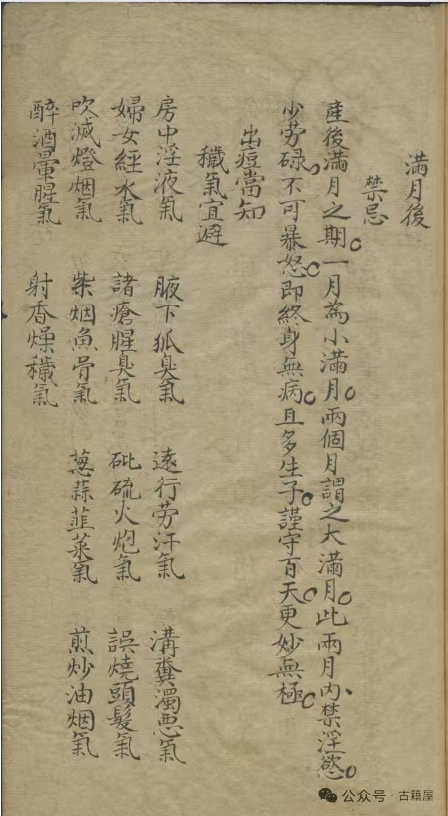 滿月後
禁忌
產後滿月之期。一月為小滿月。兩個月謂之大滿月。此兩月內、禁淫慾。
少勞碌。不可暴怒。即終身無病。且多生子。謹守百天。更妙無極。
出痘當知
穢氣宜避
房中淫液氣 腋下狐臭氣 遠行勞汗氣 溝糞濁惡氣
婦女經水氣 諸瘡腥臭氣 砒硫火炮氣 誤燒頭髮氣
吹滅燈烟氣 柴烟魚骨氣 蔥蒜韮菜氣 煎炒油烟氣
醉酒暈腥氣 射香燥穢氣
公众号 · 古籍屋